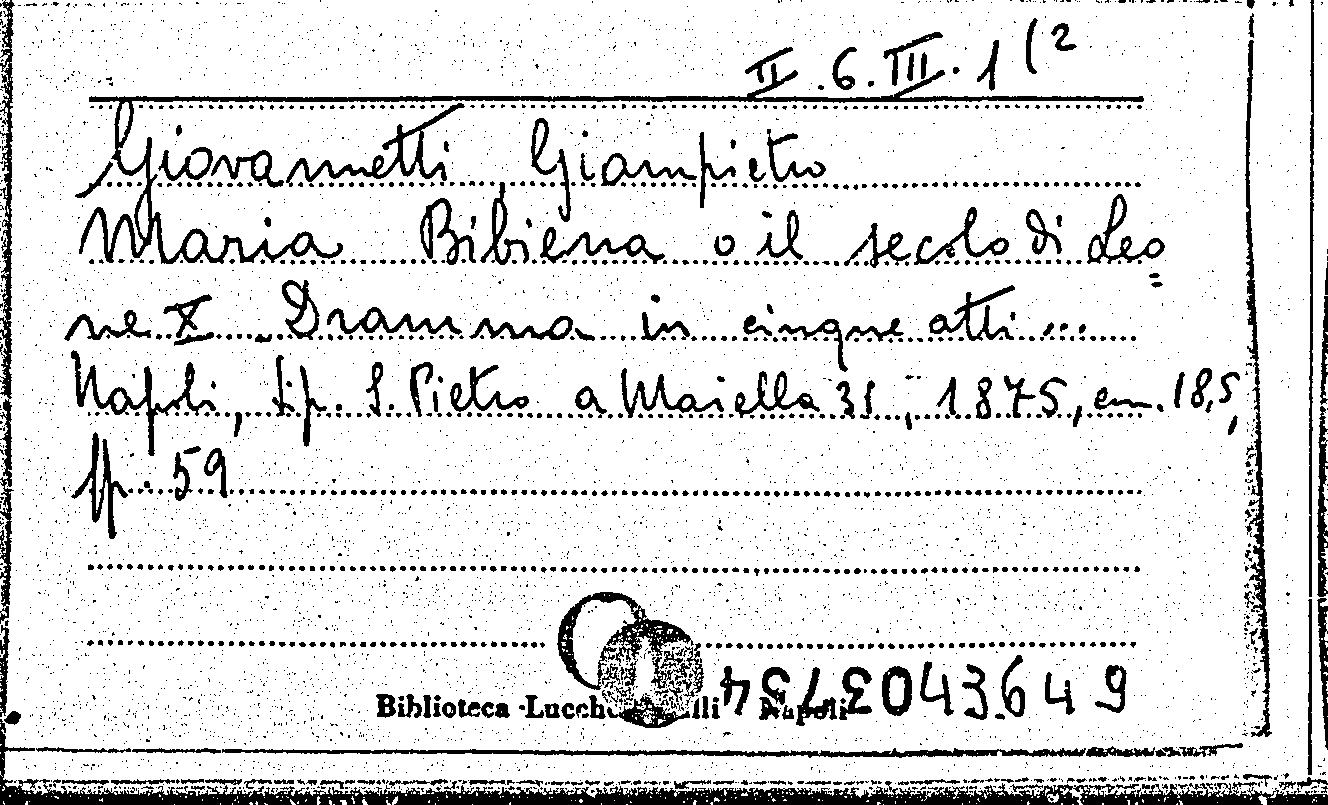 II.6.III.1(2
Giovannetti, Giampietro
Maria Bibiena o il secolo di Leo
ne X. Dramma in cinque atti...
Napoli, tip. S. Pietro a Maiella 31, 1875, cm. 18,5,
pp. 59
Biblioteca Napoli